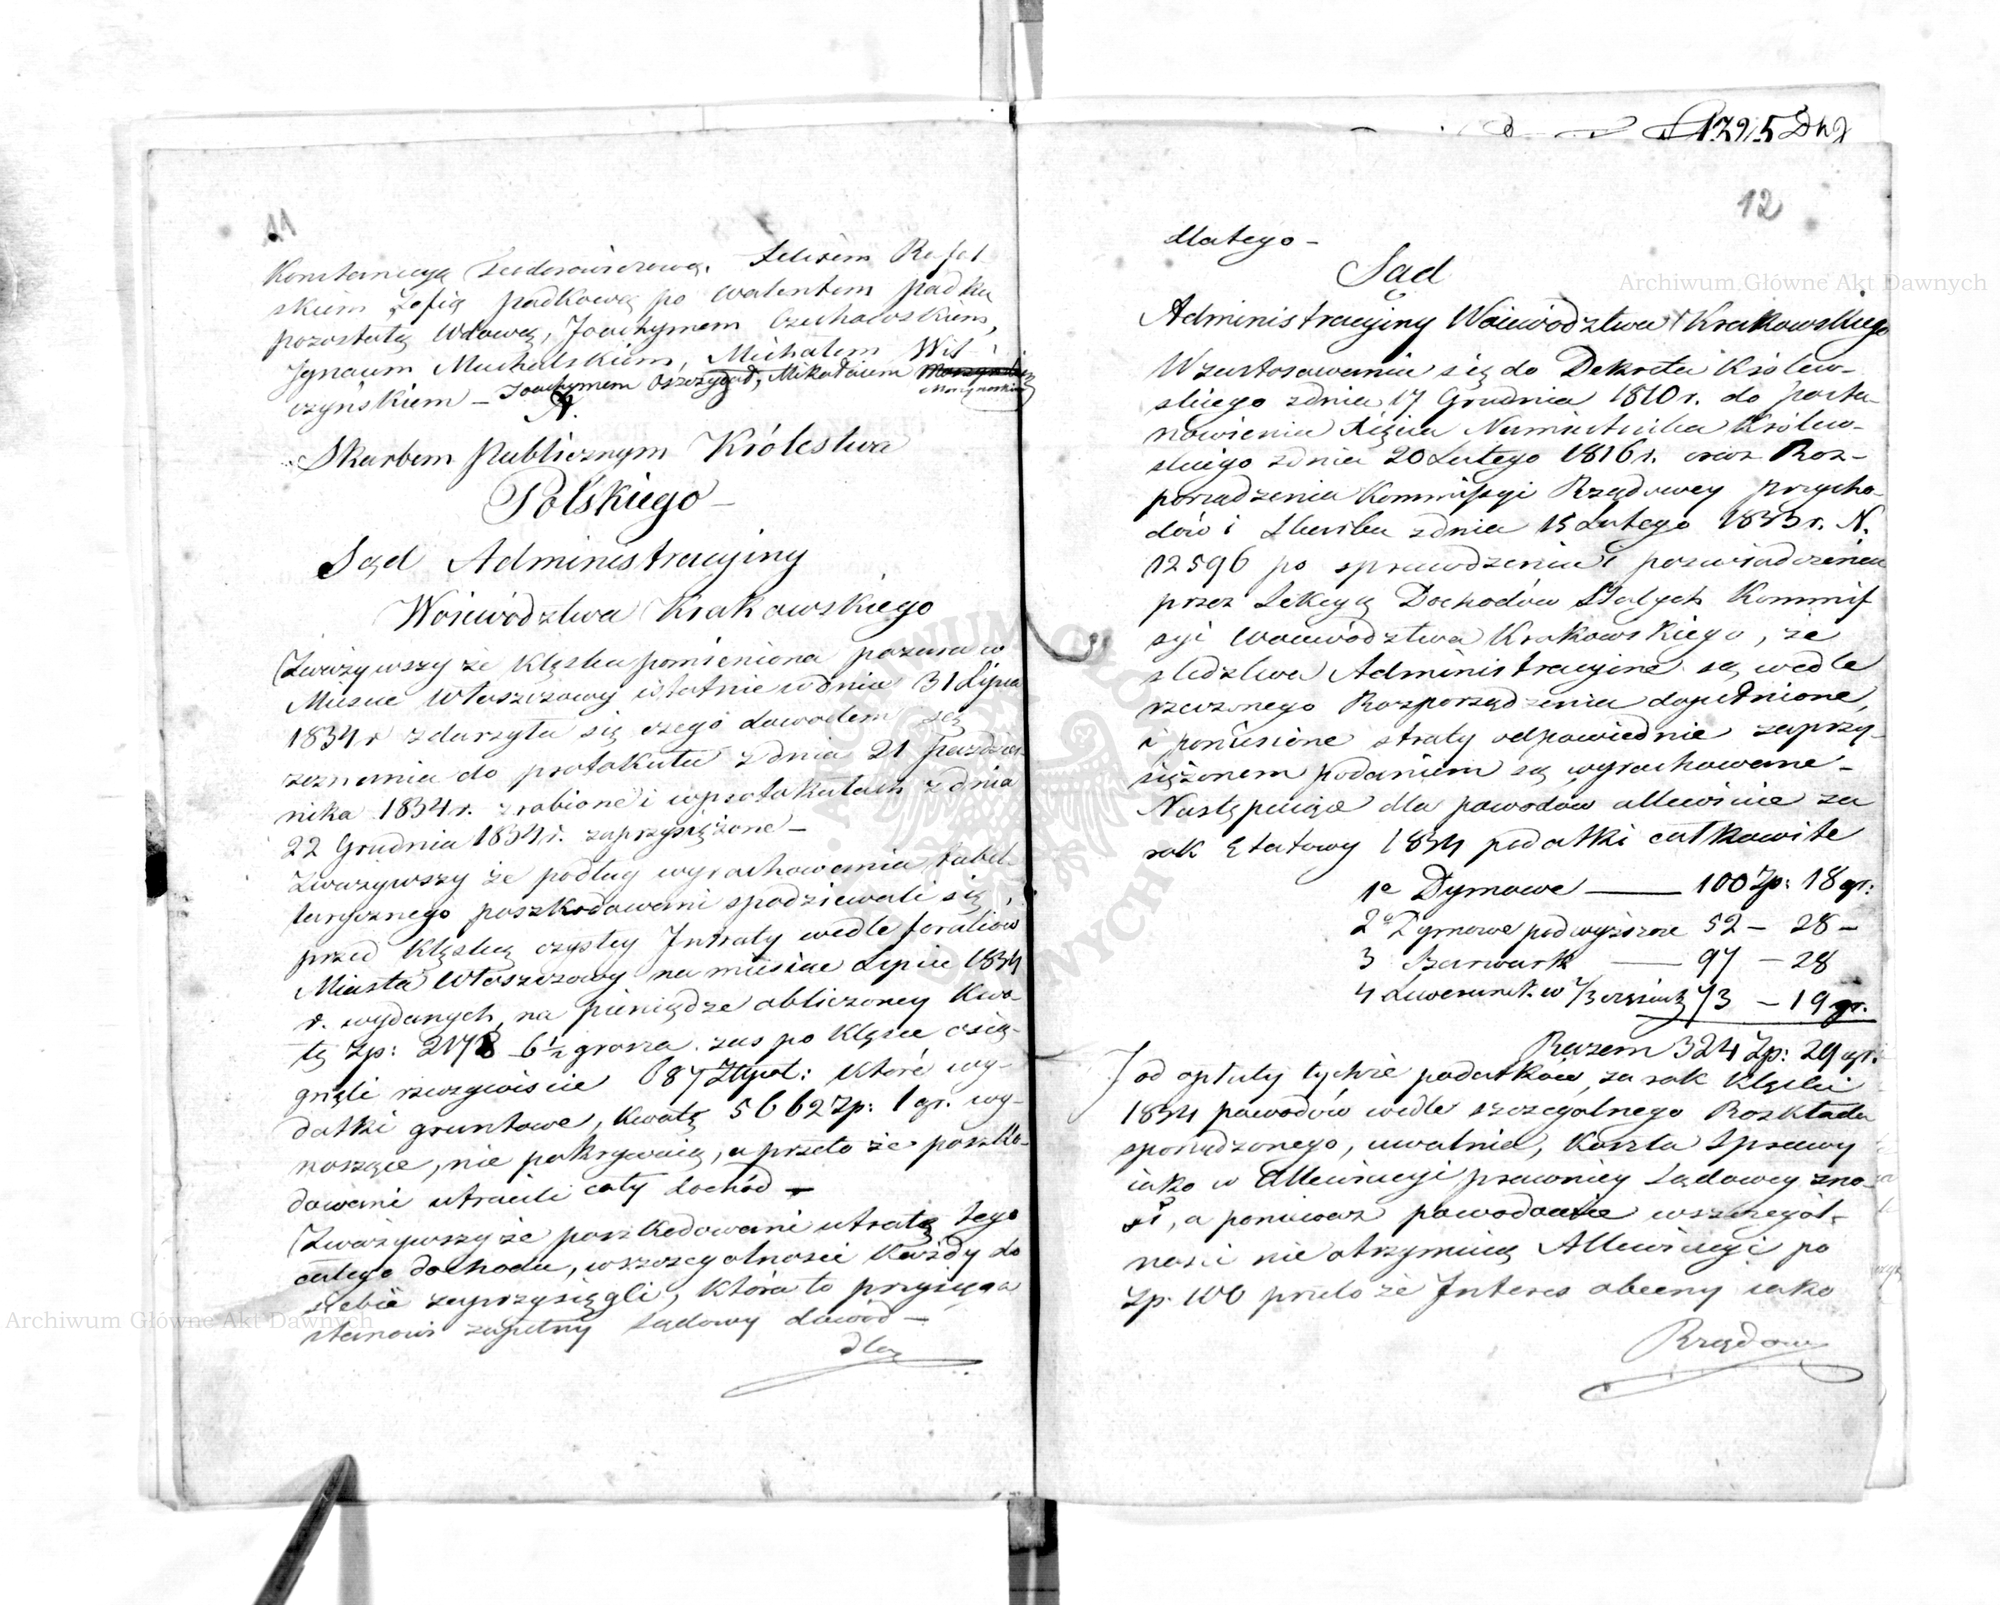 11
Konstancyą Fedorowiczową. Felixem Rafal-
skim Zofią Padkową po Walentem Padku
pozostałą Wdową, Joachymem Czechowskim,
Ignacem Michalskiem, Michałem Wil-
czyńskiem – Joachymem Oszczygad, Mikołaiem
A.
Skarbem Publicznym Królestwa
Polskiego –
Sąd Administracyiny
Woiewództwa Krakowskiego
Zważywszy że klęska pomieniona pożaru w
Mieście Włoszczowy istotnie w dniu 31 Lipca
1834 r zdarzyła się czego dowodem są
zeznania do protokułu z dnia 21 Paździer-
nika 1834 r. zrobione i w protokułach z dnia
22 Grudnia 1834 r. zaprzysiężone –
Zważywszy że podług wyrachowania tabel-
larycznego poszkodowani spodziewali się,
przed klęską czystey Intraty wedle foraliów
Miasta Włoszczowy na miesiąc Lipiec 1834
r. wydanych, na pieniądze obliczoney kwo-
tę Zp: 2178 6½ grosza. zaś po klęsce osią-
gnęli rzeczywiście 687 Złpol: które wy-
datki gruntowe, kwotę 5662 Zp: 1 gr. wy-
noszące, nie pokrywaią, a przeto że poszko-
dowani utracili cały dochód –
Zważywszy że poszkodowani utratę tego
całego dochodu, wszczególności każdy do
siebie zaprzysięgli, która to przysięga
stanowi zupełny Sądowy dowód –
dla
1295 D h 2
12
dlatego –
Sąd
Administracyiny Woiewództwa Krakowskiego
W zastosowaniu się do Dekretu Królew-
skiego z dnia 17 Grudnia 1810 r. do posta-
nowienia Xięcia Namiestnika Królew-
skiego z dnia 20 Lutego 1816 r. oraz Roz-
porządzenia Kommissyi Rządowey Przycho-
dów i Skarbu z dnia 15 Lutego 1833 r. N.
12596 po sprawdzeniu i poświadczeniu
przez Sekcyą Dochodów Stałych Kommis
syi Woiewództwa Krakowskiego, że
sledztwa Administracyine są wedle
rzeczonego Rozporządzenia dopełnione,
i poniesione straty odpowiednie zaprzy-
siężonem podaniem są wyrachowane –
Następuiące dla powodów allewiuie za
rok Etatowy 1834 podatki całkowite
1º Dymowe — 100 Zp: 18 gr:
2º Dymowe podwyższone 52 – 28 –
3 Szarwark — 97 – 28
4 Liwerunek w 2/3 części 73 – 19 gr.
Razem 324 Zp: 29 gr.
I od opłaty tychże podatków, za rok klęski
1834 powodów wedle szczególnego Rozkładu
sporządzonego, uwalnia, koszta Sprawy
iako w Allewiacyi prawniey Sądowey zno-
si, a ponieważ powodowie wszczegól-
ności nie otrzymuią Allewiacyi po
Zp. 100 przeto że Interes obecny iako
Rządowy
Archiwum Główne Akt Dawnych
Archiwum Główne Akt Dawnych